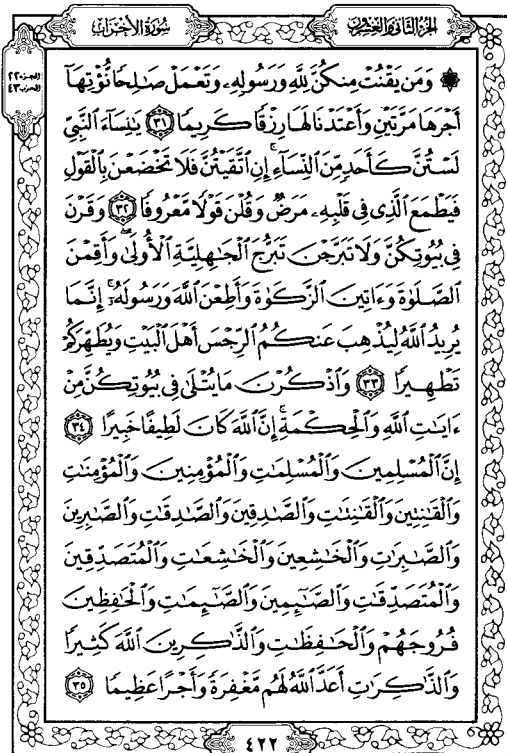 الجزء الثاني والعشرون
سورة الأحزاب
الجزء ٢٢
الحزب ٤٣
۞ وَمَن يَقْنُتْ مِنكُنَّ لِلَّهِ وَرَسُولِهِۦ وَتَعْمَلْ صَٰلِحًا نُّؤْتِهَآ
أَجْرَهَا مَرَّتَيْنِ وَأَعْتَدْنَا لَهَا رِزْقًا كَرِيمًا ٣١ يَٰنِسَآءَ ٱلنَّبِيِّ
لَسْتُنَّ كَأَحَدٍ مِّنَ ٱلنِّسَآءِ ۚ إِنِ ٱتَّقَيْتُنَّ فَلَا تَخْضَعْنَ بِٱلْقَوْلِ
فَيَطْمَعَ ٱلَّذِى فِى قَلْبِهِۦ مَرَضٌ وَقُلْنَ قَوْلًا مَّعْرُوفًا ٣٢ وَقَرْنَ
فِى بُيُوتِكُنَّ وَلَا تَبَرَّجْنَ تَبَرُّجَ ٱلْجَٰهِلِيَّةِ ٱلْأُولَىٰ ۖ وَأَقِمْنَ
ٱلصَّلَوٰةَ وَءَاتِينَ ٱلزَّكَوٰةَ وَأَطِعْنَ ٱللَّهَ وَرَسُولَهُۥٓ ۚ إِنَّمَا
يُرِيدُ ٱللَّهُ لِيُذْهِبَ عَنكُمُ ٱلرِّجْسَ أَهْلَ ٱلْبَيْتِ وَيُطَهِّرَكُمْ
تَطْهِيرًا ٣٣ وَٱذْكُرْنَ مَا يُتْلَىٰ فِى بُيُوتِكُنَّ مِنْ
ءَايَٰتِ ٱللَّهِ وَٱلْحِكْمَةِ ۚ إِنَّ ٱللَّهَ كَانَ لَطِيفًا خَبِيرًا ٣٤
إِنَّ ٱلْمُسْلِمِينَ وَٱلْمُسْلِمَٰتِ وَٱلْمُؤْمِنِينَ وَٱلْمُؤْمِنَٰتِ
وَٱلْقَٰنِتِينَ وَٱلْقَٰنِتَٰتِ وَٱلصَّٰدِقِينَ وَٱلصَّٰدِقَٰتِ وَٱلصَّٰبِرِينَ
وَٱلصَّٰبِرَٰتِ وَٱلْخَٰشِعِينَ وَٱلْخَٰشِعَٰتِ وَٱلْمُتَصَدِّقِينَ
وَٱلْمُتَصَدِّقَٰتِ وَٱلصَّٰٓئِمِينَ وَٱلصَّٰٓئِمَٰتِ وَٱلْحَٰفِظِينَ
فُرُوجَهُمْ وَٱلْحَٰفِظَٰتِ وَٱلذَّٰكِرِينَ ٱللَّهَ كَثِيرًا
وَٱلذَّٰكِرَٰتِ أَعَدَّ ٱللَّهُ لَهُم مَّغْفِرَةً وَأَجْرًا عَظِيمًا ٣٥
٤٢٢